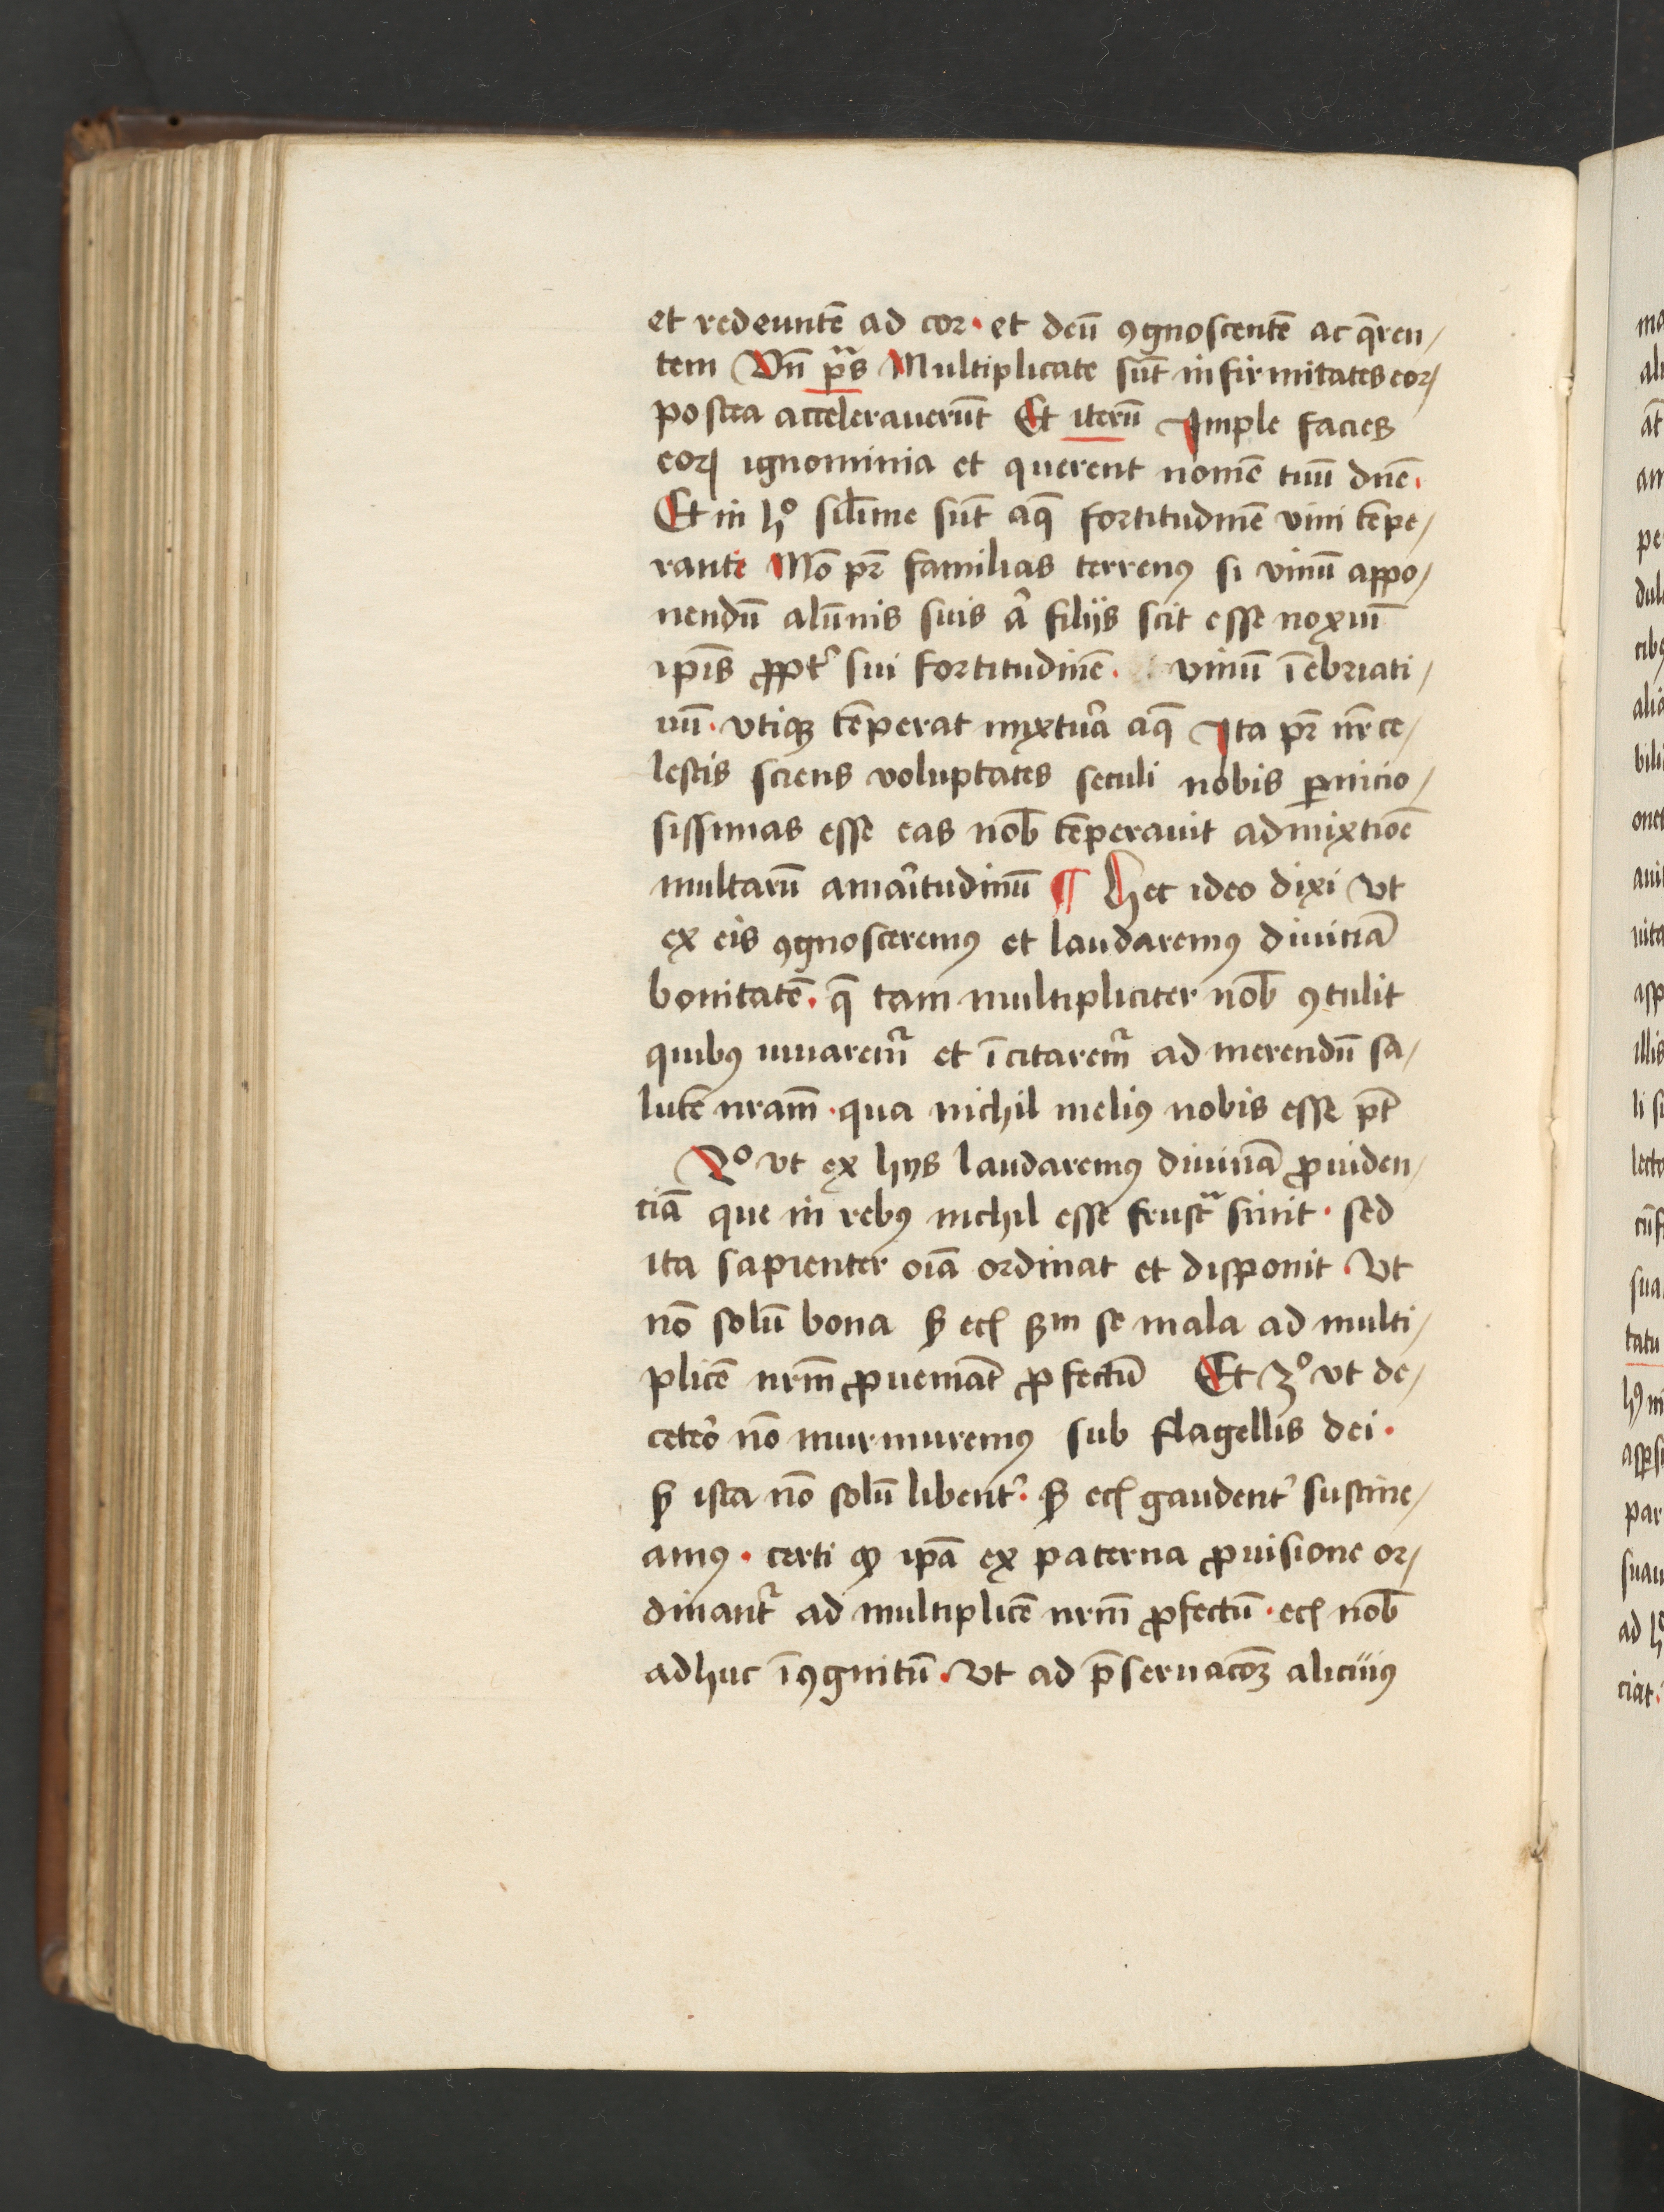 et redeuntē ad cor · et deū ꝯgnoscentē ac q̄ren/
tem Vn̄ ps̄ Multiplicate sūt infirmitates eoꝝ
postea accelerauerūt Et iterū Imple facies
eoꝝ ignominia et querent nomē tuū dn̄e ·
Et in hº sil̄ime sūt aq̄ fortitudinē vini tēpe/
ranti Mō pr̄ familias terrenꝰ si vinū appo/
nendū alūnis suis a̾ filijs scit esse noxiū
ip̄is ꝓpt̾ sui fortitudinē · vinū īebriati/
uū · vtiqꝫ tēperat mixtur̄a aq̄ Ita pr̄ nr̄ ce/
lestis sciens voluptates seculi nobis ꝑnicio/
sissimas esse eas nob̄ tēperauit admixtiōē
multarū amar̄itudinū ¶ Hec ideo dixi vt
ex eis ꝯgnosceremꝰ et laudaremꝰ diuinā
bonitatē · q̄ tam multipliciter nob̄ ꝯtulit
quibꝰ iuuarem̄ et īcitarem̄ ad merendū sa/
lutē nr̄am · qua nichil meliꝰ nobis esse pt̄
2º vt ex hijs laudaremꝰ diuinā ꝓuiden/
ciā que in rebꝰ nichil esse frustᵃ sinit · sed
ita sapienter oīa ordinat et disponit · Vt
nō solū bona sꝫ ecꝫ ẜm se mala ad multi/
plicē nr̄m ꝓueniāt ꝓfectū Et 3º vt de/
ceter̄o nō murmuremꝰ sub flagellis dei ·
sꝫ ista nō solū libent̾ · sꝫ ecꝫ gaudent̾ sustine/
amꝰ · certi ꝙ ip̄a ex paterna ꝓuisione or/
dinant̾ ad multiplicē nr̄m ꝓfectū · ecꝫ nob̄
adhuc īꝯgnitū · Vt ad p̄seruacōꝫ alicuiꝰ